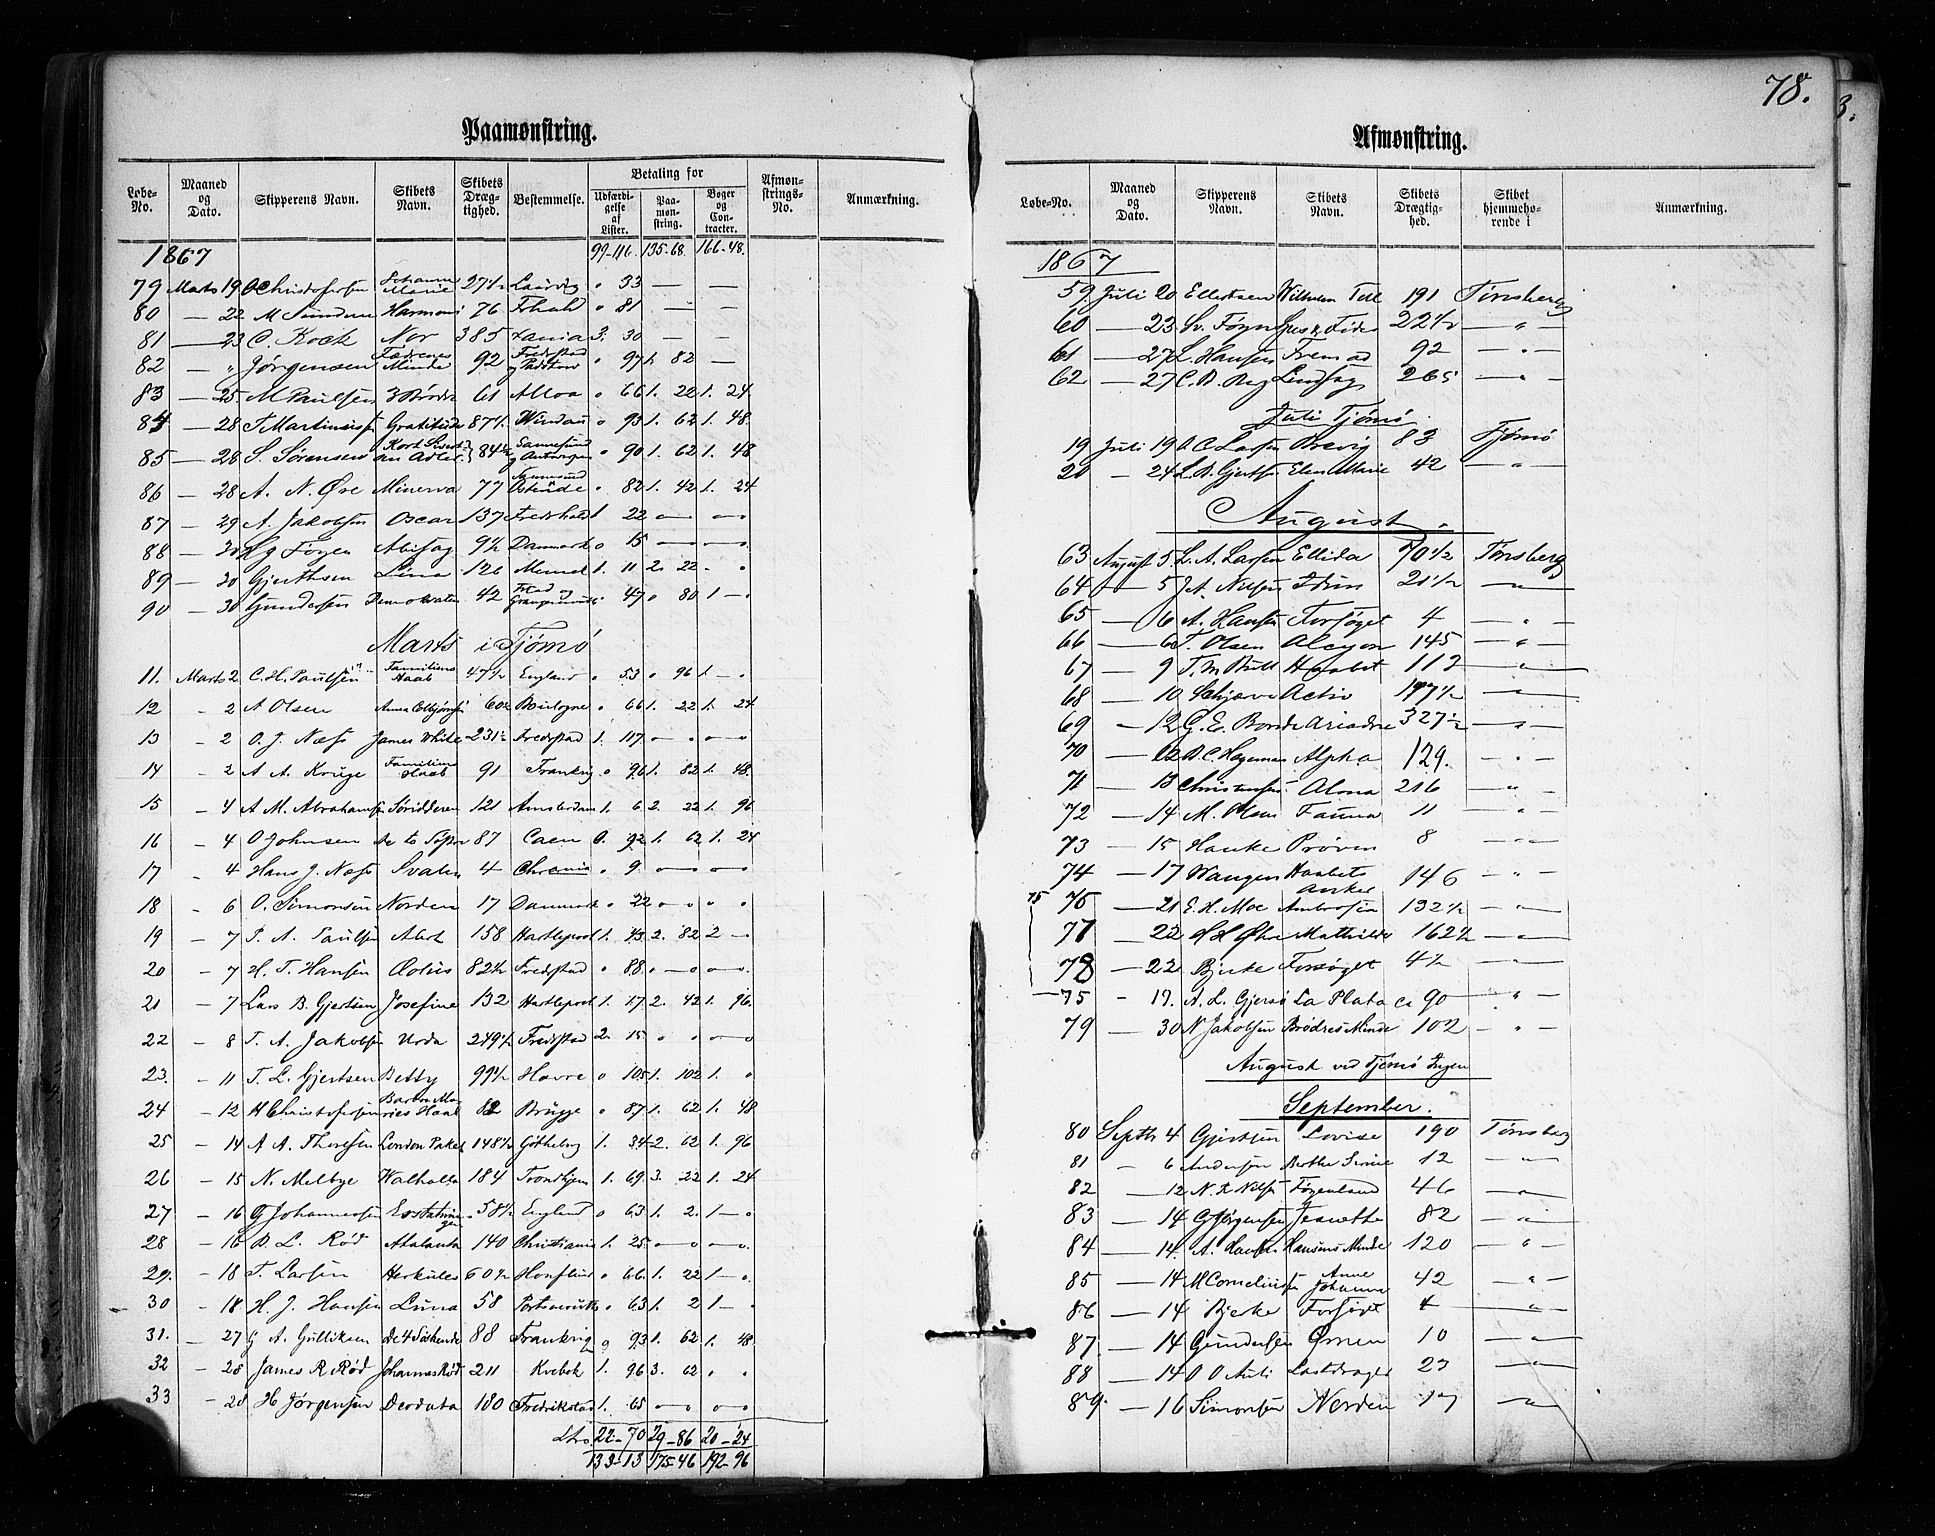 Paamønstring.
Løbe-No. Maaned og Dato. Skipperens Navn. Skibets Navn. Skibets Drægtighed. Bestemmelse. Betaling for Udfærdigelse af Lister. Paamønstring. Bøger og Contracter. Afmønstrings-No. Anmærkning.
1867 99-116. 135-68. 166-48.
79 Marts 19 Christofersen Johanne Marie 27½ Laurvig " 33 — —
80 — 22 M Harmoni 76 " 81 — —
81 — 23 C. Kock Nor 385 3. 30 — —
82 — " Jørgensen Fædrenes Minde 92 Fredrstad 97 1. 82 —
83 — 25 M Paulsen 3 Brødre 61 Alloa 0 66 1. 22 1. 24
84 — 28 T Martinius Gratitude 87½ Windau 0 93 1. 62 1. 48
85 — 28 S. Sørensen Adler 84½ Sannesund og Antwerpen 0 90 1. 62 1. 48
86 — 28 A. N. Øre Minerva 77 Sannesund Ostende 0 82 1. 42 1. 24
87 — 29 A. Jakobsen Oscar 137 Fredrhald 1. 22 — —
88 — 30 H g Føyen Abisag 9½ Danmark 0 15 — —
89 — 30 Gjerthsen Lina 126 Memel 1. 11 2. 22 - 0
90 — 30 Gundersen Demokraten 42 47 0 80 1 — 0
Marts i Tjømø
11. Marts 2 C. H. Paulsen Familiens Haab 47½ England 0 53 0 96 1 — 0
12 - 2 A Olsen 60½ Boulogne 0 66 1. 22 1. 24
13 - 2 O. J. Næss James White 231½ Fredrstad 1. 117 — —
14 - 2 A A. Kruge Familiens Haab 91 Frankrig 0 96 1. 82 1. 48
15 - 4 A M. Abrahamsen Sørideren 121 Amsterdam 1. 6 2. 22 1. 96
16 - 4 O Johnsen de to 87 Caen 0. 92 1. 62 1. 24
17 - 4 Hans J. Næss Svalen 4 Chrania 0 9 — —
18 - 6 O. Simonsen Norden 17 Danmark 0 22 — 0 0 0
19 - 7 P. A. Paulsen Abert 158 Hartlepool 1. 43 2. 82 2 — 0
20 - 7 H. T. Hansen Æolus 82½ Fredrstad 0 88 0 — 0 — 0
21 - 7 Lars B. Gjertsen Josefine 132 Hartlepool 1. 17 2. 42 1. 96
22 - 8 T. A. Jakobsen Urda 249½ Fredrstad 2. 15 0 0 0 — 0
23. - 11 T. L. Gjertsen Betty 99½ Havre 0 105 1. 102 1. 0
24 - 12 H Christofersen Barbra Maries Haab 82 Brügge 0 87 1. 62 1. 48
25 - 14 A A. Thoresen London Paket 148½ Götheborg 1. 34 2. 62 1. 96
26 - 15 N. Melbye Walhalla 184 Trondhjem 1. 69 3. 22 1. 24
27 - 16 G Johannessen 58½ England 0 63 1. 2 1 — 0
28 - 16 B. L. Rød Atalanta 140 Christiania 1. 25 0 — 0 0 — 0
29. - 18 T. Larsen Herkules 60½ Honfleur 0 66 1. 22 1 — 0
30 - 18 H. J. Hansen Luna 58 Portsmouth 0 63 1. 2 1 — 0
31. - 27 G A. Gulliksen De 4 Søskende 88 Frankrig 0 93 1. 62 1. 48
32 - 28 James R Rød Johannes Rød 211 Kvebek 1. 96 3. 62 0 0
33 - 28 H Jørgensen Deodata 180 Fredrikstad 1. 65 0 — 0 0 — 0
Lhs. 22-70 29-86 20-24
133-13 175-46 192-96
78.
Afmønstring.
Løbe-No. Maaned og Dato. Skipperens Navn. Skibets Navn. Skibets Drægtighed. Skibet hjemmehørende i Anmærkning.
1867
59 Juli 20 Ellertsen Wilhelm Tell 191 Tønsberg
60 — 23 Sv. Føyn 22½ — " —
61 — 27 L. Hansen Fremad 92 — " —
62 — 27 C. B. Bag Lindsay 265 — " —
Juli Tjømø
19 Juli 19 O. C. Larsen Brevig 83 Tjømø
20 — 24 L. B. Gjertsen Elen Marie 42 — " —
August.
63 August 5 L. A. Larsen Ellida 70½ Tønsberg
64 — 5 J. A. Nilsen Idun 21½ — " —
65 — 6 A. Hansen Forsøget 4 — " —
66 — 6 T. Olsen Alcyon 145 — " —
67 — 9 T. M Bull Haabet 113 — " —
68 — 10 Schjæve Activ 197½ — " —
69 - 12 G. E. Borde Ariadne 327½ — " —
70 — 12 O. C. Hageman Alpha 129. — " —
71 — 13 Christensen Alona 216 — " —
72 — 14 M. Olsen Fauna 11 — " —
73 - 15 Hanke Prøven 8 — " —
74 — 17 Wangen Haabets Anker 146 — " —
75 76 — 21 E. H. Moe Ambrosia 132½ — " —
77 — 22 H H Øhre Mathilde 162½ — " —
78 — 22 Bjerke Forsøget 4½ — " —
75 - 17. A. L. Gjersø La Plata ca 90 — " —
79 — 30 N Jakobsen Brødres Minde 102 — " —
August ved Tjømø Ingen
September.
80 Septbr 4 Gjertsen Lovise 190 Tønsberg
81 - 6 Andersen Berthe Sevine 12 — " —
82 — 12 N. A Nilsen Føyenland 46 — " —
83 — 14 G Jørgensen Jeanette 82 — " —
84 — 14. A. Hansen Hansens Minde 120 — " —
85 — 14 M Corneliusen Anne Johanna 42 — " —
86 — 14 Bjerke Forsøget 4 — " —
87. — 14 Gundersen Ørnen 10 — " —
88 — 14 O O Auli Lastdrager 23 — " —
89. — 16 Simonsen Norden 17 — " —